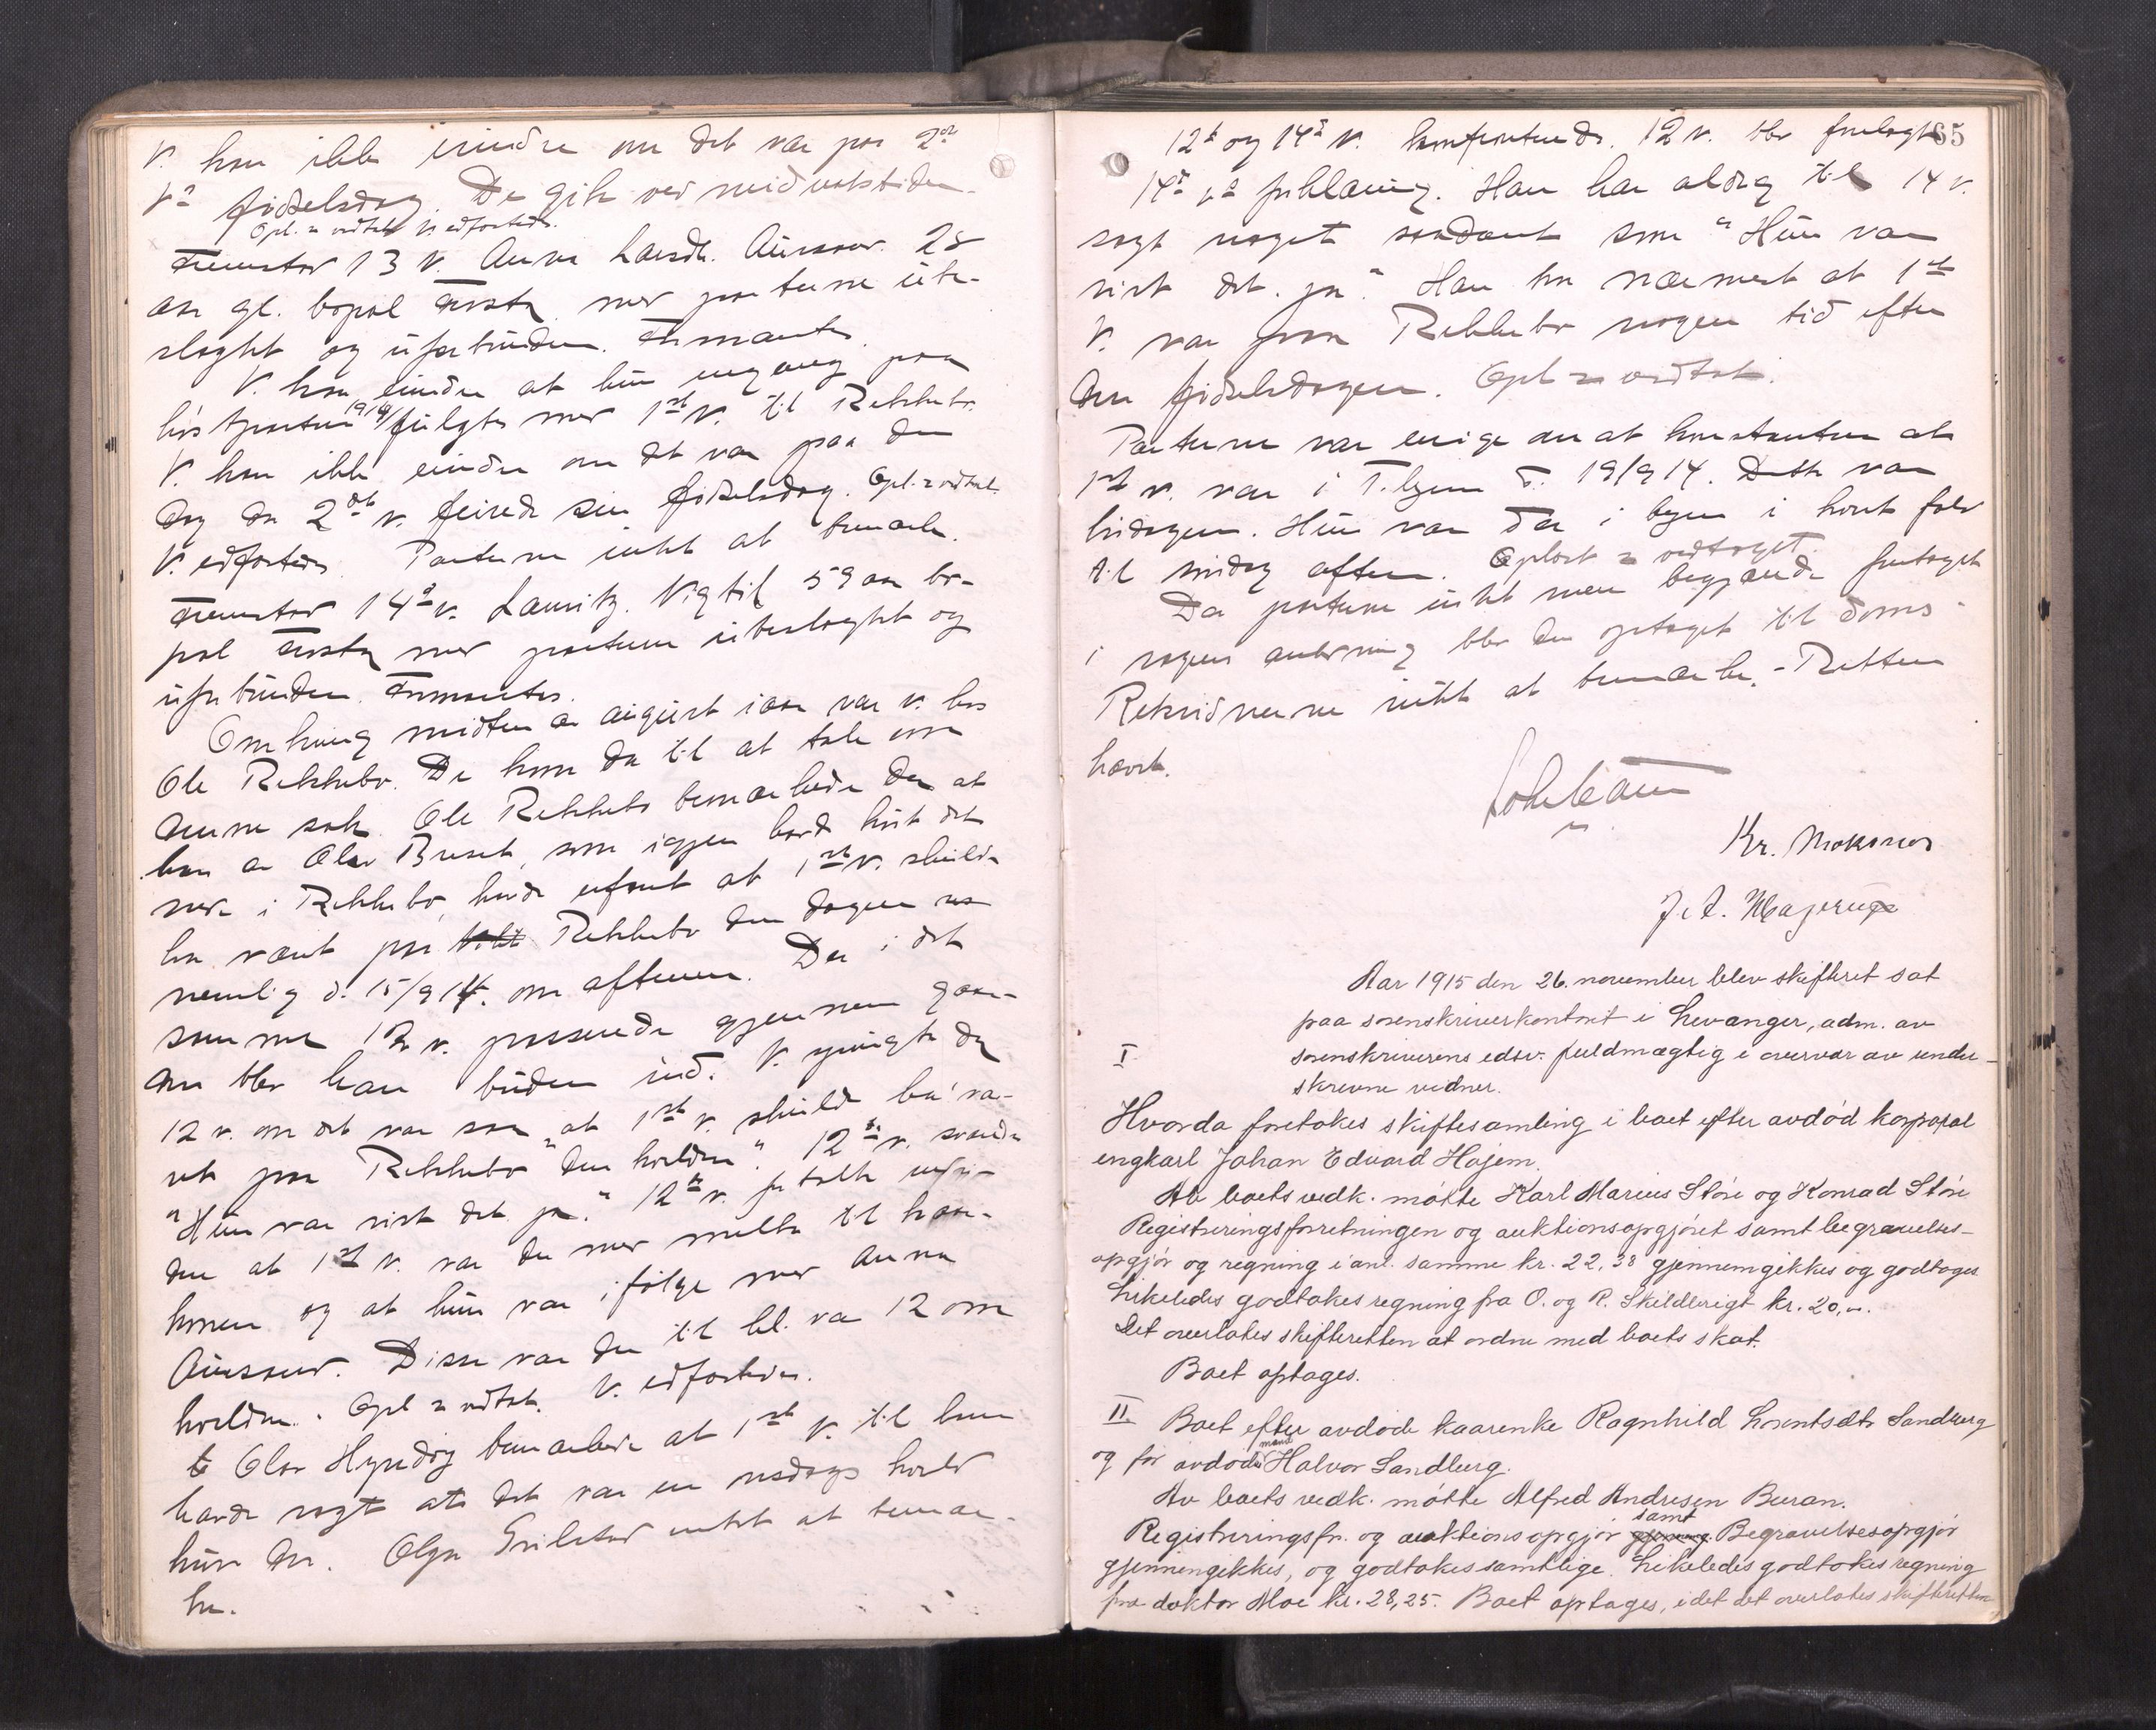 V. kan ikke erindre om det var paa 2det
V.s fødselsdag. De gik ved midnatstiden.
Opl. = vedtat V. edfæstedes.
Fremstod 13 V. Anna Larsdt. Aursand. 28
aar gl. bopæl Frosta med parterne ube-
slægtet og uforbunden. Formantes.
V. kan erindre at hun engang paa
høstparten 1914 fulgte med 1ste V. til Rekkebo.
V. kan ikke erindre om det var paa den
dag da 2det V. feirede sin fødselsdag. Opl. = vedtat.
V. edfæstedes. Parterne intet at bemærke.
Fremstod 14de V. Lauritz Vigtil 59 aar bo-
pæl Frosta med parterne ubeslægtet og
uforbunden. Formantes.
Omkring midten av august iaar var V. hos
Ole Rekkebo. De kom da til at tale om
denne sak. Ole Rekkebo bemærkede da at
han av Olav Buset, som igjen havde hørt det
nede i Rekkebo, havde erfaret at 1ste V. skulde
ha været paa Rekkebo den dagen
nemlig d. 15/9 14. om aftenen. Da i det
samme 12 V. passerede gjennem gaar-
den blev han buden ind. V. spurgte da
12 V. om det var saa "at 1ste V. skulde ha va-
ret paa Rekkebo den kvelden". 12te V. svarede
"Hun var vist det ja." 12te V. fortalte
den at 1ste V. var der med melk til
konen og at hun var i følge med Anna
Aursand. Disse var der til kl. va 12 om
kvelden. Opl = vedtat. V. edfæstedes.
Olav Hynday bemærkede at 1ste V. til ham
havde sagt at det var en kveld
hun der. Olga Eriksdat intet at bemær-
ke.
85
12te og 14de V. konfronteredes. 12 V. blev forelagt
14de V.s forklaring. Han har aldrig til 14 V.
sagt noget saadant som "Hun var
vist det ja." Han har nævnt at 1ste
V. var paa Rekkebo nogen tid efter
den fødselsdagen. Opl = vedtat.
Parterne var enige om at konstatere at
1ste V. var i T.hjem d. 19/9 14. Dette var
lørdagen. Hun var da i byen i hvert fald
til søndag aften. Oplæst = vedtaget.
Da parterne intet mere begjærede foretaget
i sagens anledning blev den optaget til doms.
Retsvidnerne intet at bemærke. - Retten
hævet.
Kr. Moksnes
J. A. Magerup
Aar 1915 den 26. november blev skifteret sat
paa sorenskriverkontoret i Levanger, adm. av
I
sorenskriverens edsv. fuldmægtig i overvær av under-
skrevne vidner.
Hvorda foretokes skiftesamling i boet efter avdød korporal
ungkarl Johan Edvard Hojem.
Av boets vedk. møtte Karl Marius Støre og Konrad Støre
Registreringsforretningen og auktionsopgjøret samt begravelses-
opgjør og regning i anl. samme kr. 22,38 gjennemgikkes og godtages
Likeledes godtakes regning fra O. og R. Skjelderigt kr. 20,00.
Det overlates skifteretten at ordne med boets skat.
Boet optages.
II. Boet efter avdøde kaarenke Ragnhild Lorentsdtr Sandberg
og før avdøde mand Halvor Sandberg.
Av boets vedk. møtte Alfred Andresen Buran.
Registreringsfr. og auktionsopgjør samt Begravelsesopgjør
gjennemgikkes, og godtakes samtlige. Likeledes godtokes regning
fra doktor Moe kr. 28,25. Boet optages, idet det overlates skifteretten